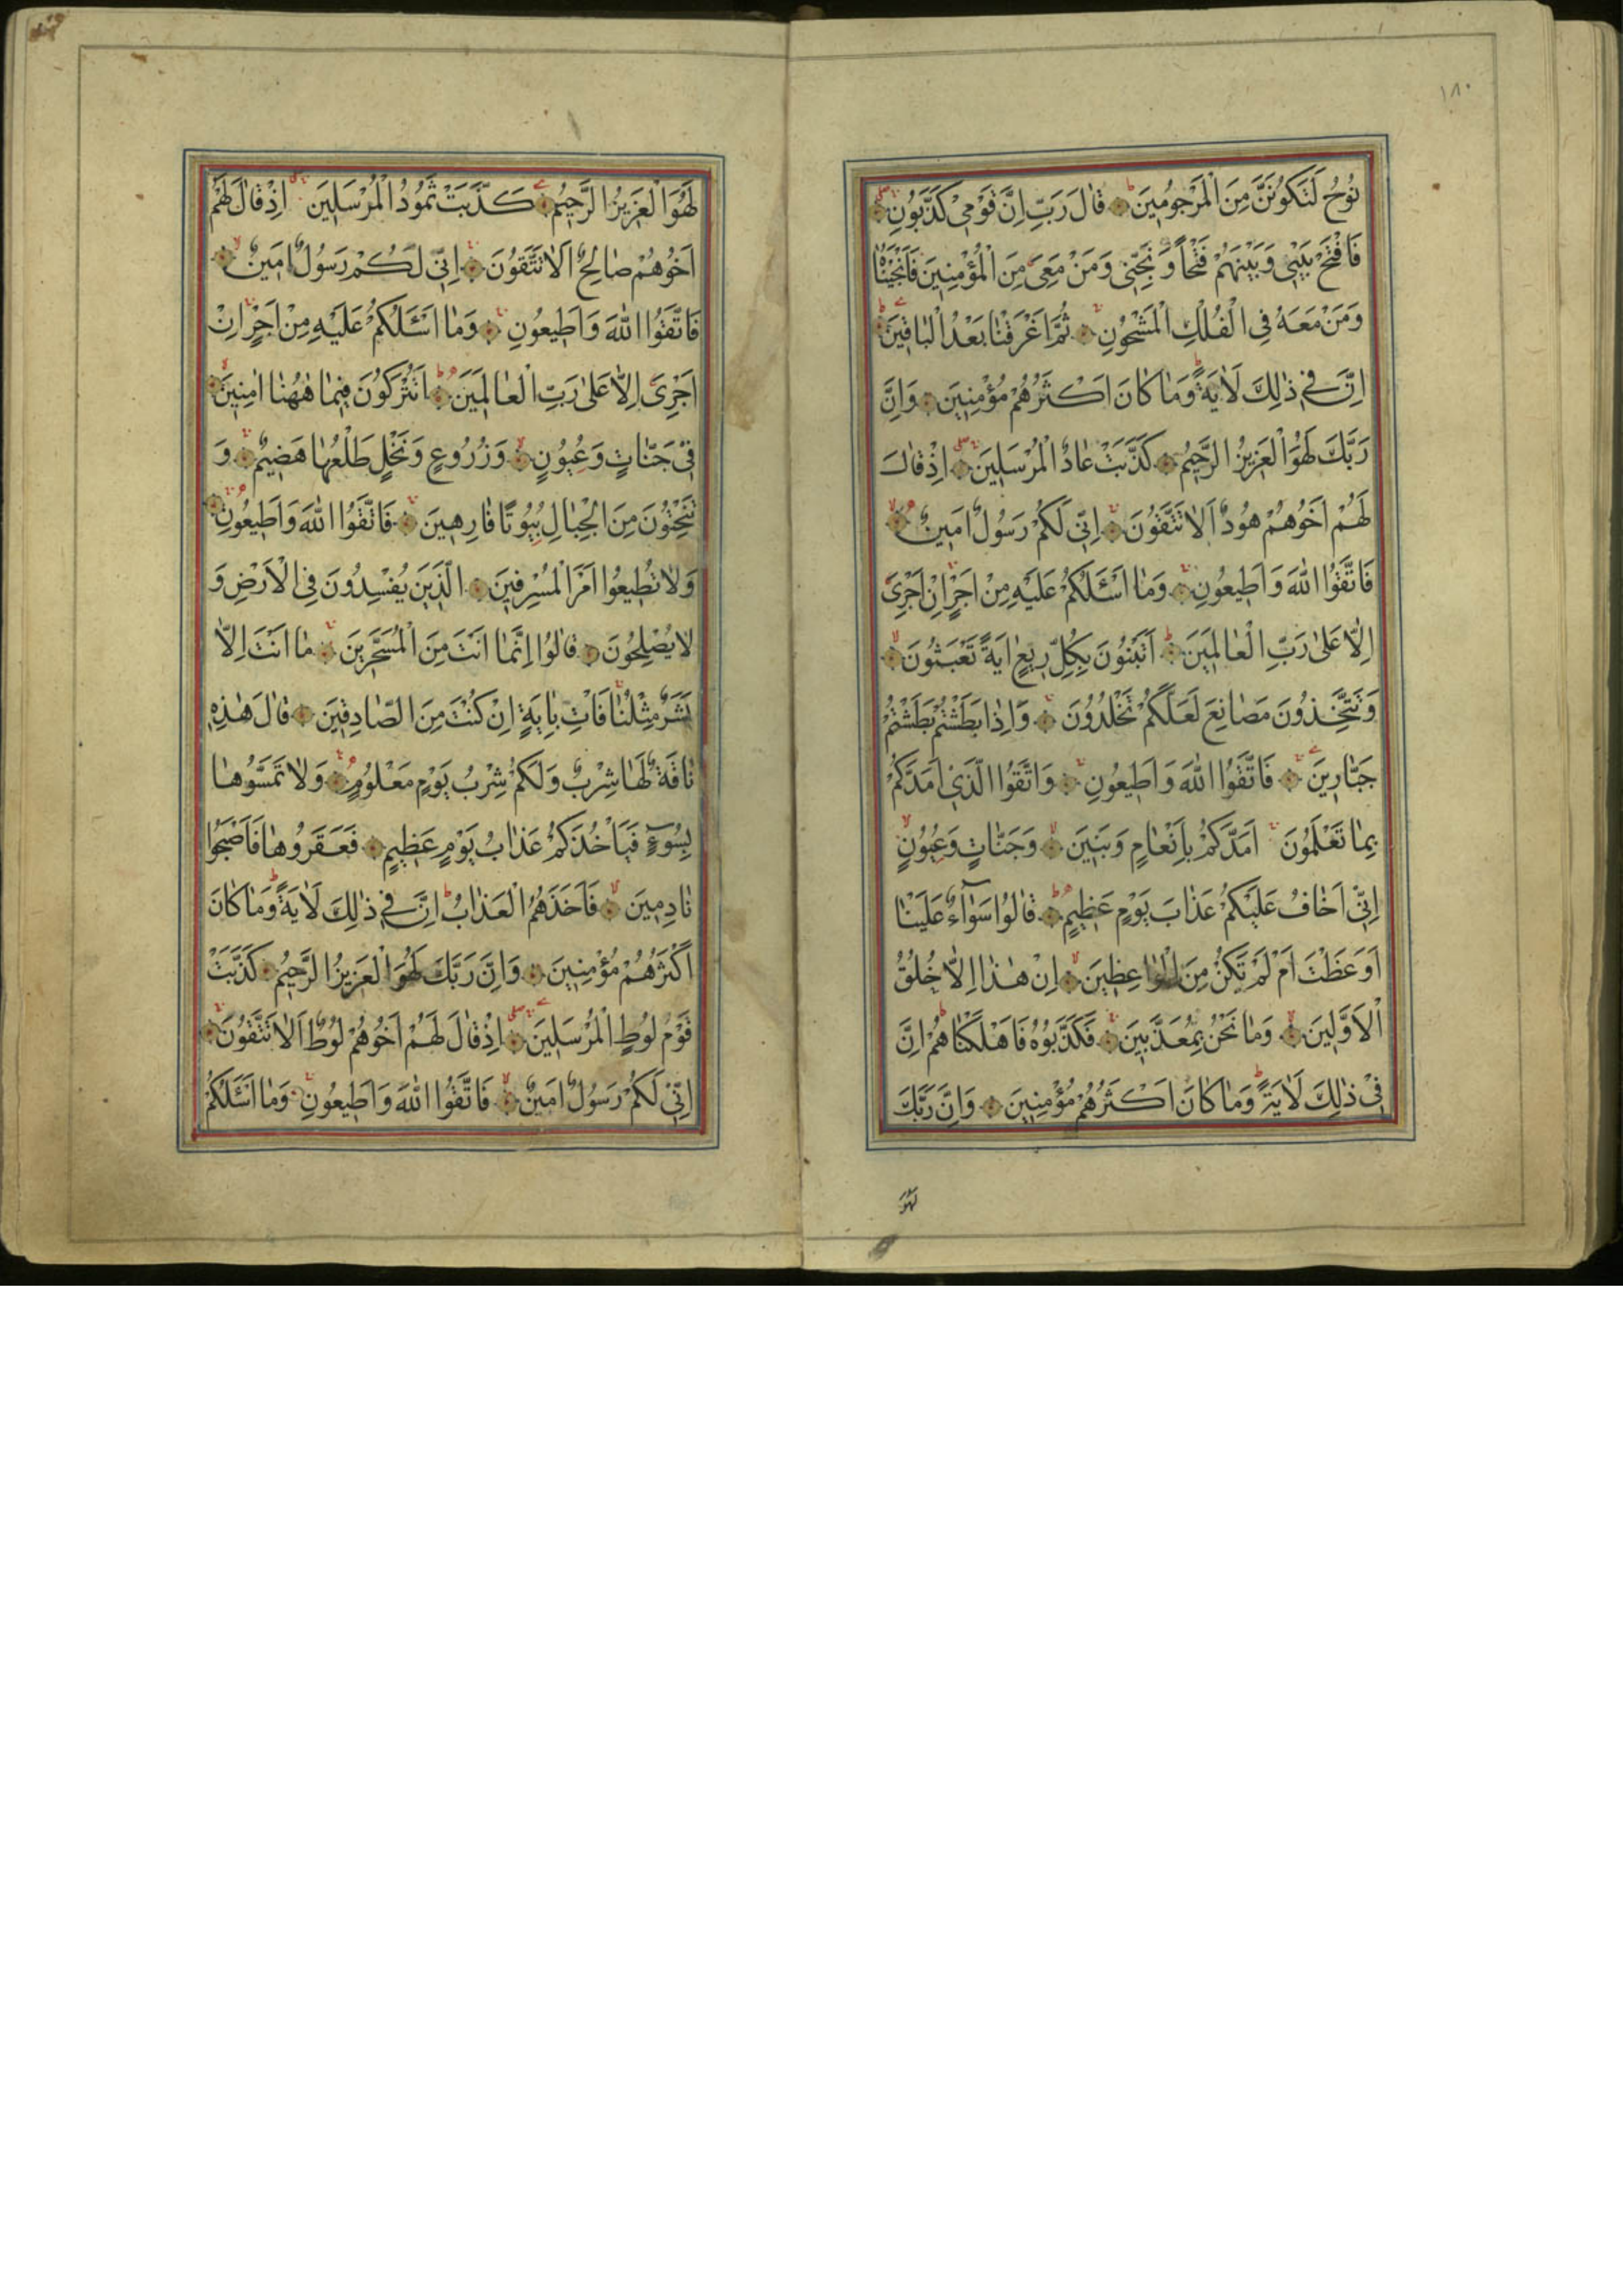 ١٨٠
نُوحُ لَتَكُونَنَّ مِنَ الْمَرْجُومِينَ قَالَ رَبِّ اِنَّ قَوْمِي كَذَّبُونِ
فَافْتَحْ بَيْنِي وَبَيْنَهُمْ فَتْحًا وَنَجِّنِي وَمَنْ مَعِيَ مِنَ الْمُؤْمِنِينَ فَاَنْجَيْنَاهُ
وَمَنْ مَعَهُ فِي الْفُلْكِ الْمَشْحُونِ ثُمَّ اَغْرَقْنَا بَعْدُ الْبَاقِينَ
اِنَّ فِي ذٰلِكَ لَاٰيَةً وَمَا كَانَ اَكْثَرُهُمْ مُؤْمِنِينَ وَاِنَّ
رَبَّكَ لَهُوَ الْعَزِيزُ الرَّحِيمُ كَذَّبَتْ عَادٌ الْمُرْسَلِينَ اِذْ قَالَ
لَهُمْ اَخُوهُمْ هُودٌ اَلَا تَتَّقُونَ اِنِّي لَكُمْ رَسُولٌ اَمِينٌ
فَاتَّقُوا اللّٰهَ وَاَطِيعُونِ وَمَا اَسْـَٔلُكُمْ عَلَيْهِ مِنْ اَجْرٍ اِنْ اَجْرِيَ
اِلَّا عَلٰى رَبِّ الْعَالَمِينَ اَتَبْنُونَ بِكُلِّ رِيعٍ اٰيَةً تَعْبَثُونَ
وَتَتَّخِذُونَ مَصَانِعَ لَعَلَّكُمْ تَخْلُدُونَ وَاِذَا بَطَشْتُمْ بَطَشْتُمْ
جَبَّارِينَ فَاتَّقُوا اللّٰهَ وَاَطِيعُونِ وَاتَّقُوا الَّذِي اَمَدَّكُمْ
بِمَا تَعْلَمُونَ اَمَدَّكُمْ بِاَنْعَامٍ وَبَنِينَ وَجَنَّاتٍ وَعُيُونٍ
اِنِّي اَخَافُ عَلَيْكُمْ عَذَابَ يَوْمٍ عَظِيمٍ قَالُوا سَوَآءٌ عَلَيْنَا
اَوَعَظْتَ اَمْ لَمْ تَكُنْ مِنَ الْوَاعِظِينَ اِنْ هٰذَا اِلَّا خُلُقُ
الْاَوَّلِينَ وَمَا نَحْنُ بِمُعَذَّبِينَ فَكَذَّبُوهُ فَاَهْلَكْنَاهُمْ اِنَّ
فِي ذٰلِكَ لَاٰيَةً وَمَا كَانَ اَكْثَرُهُمْ مُؤْمِنِينَ وَاِنَّ رَبَّكَ
لَهُوَ
لَهُوَ الْعَزِيزُ الرَّحِيمُ كَذَّبَتْ ثَمُودُ الْمُرْسَلِينَ اِذْ قَالَ لَهُمْ
اَخُوهُمْ صَالِحٌ اَلَا تَتَّقُونَ اِنِّي لَكُمْ رَسُولٌ اَمِينٌ
فَاتَّقُوا اللّٰهَ وَاَطِيعُونِ وَمَا اَسْـَٔلُكُمْ عَلَيْهِ مِنْ اَجْرٍ اِنْ
اَجْرِيَ اِلَّا عَلٰى رَبِّ الْعَالَمِينَ اَتُتْرَكُونَ فِيمَا هٰهُنَا اٰمِنِينَ
فِي جَنَّاتٍ وَعُيُونٍ وَزُرُوعٍ وَنَخْلٍ طَلْعُهَا هَضِيمٌ وَ
تَنْحِتُونَ مِنَ الْجِبَالِ بُيُوتًا فَارِهِينَ فَاتَّقُوا اللّٰهَ وَاَطِيعُونِ
وَلَا تُطِيعُوا اَمْرَ الْمُسْرِفِينَ الَّذِينَ يُفْسِدُونَ فِي الْاَرْضِ وَ
لَا يُصْلِحُونَ قَالُوا اِنَّمَا اَنْتَ مِنَ الْمُسَحَّرِينَ مَا اَنْتَ اِلَّا
بَشَرٌ مِثْلُنَا فَاْتِ بِاٰيَةٍ اِنْ كُنْتَ مِنَ الصَّادِقِينَ قَالَ هٰذِهِ
نَاقَةٌ لَهَا شِرْبٌ وَلَكُمْ شِرْبُ يَوْمٍ مَعْلُومٍ وَلَا تَمَسُّوهَا
بِسُوءٍ فَيَاْخُذَكُمْ عَذَابُ يَوْمٍ عَظِيمٍ فَعَقَرُوهَا فَاَصْبَحُوا
نَادِمِينَ فَاَخَذَهُمُ الْعَذَابُ اِنَّ فِي ذٰلِكَ لَاٰيَةً وَمَا كَانَ
اَكْثَرُهُمْ مُؤْمِنِينَ وَاِنَّ رَبَّكَ لَهُوَ الْعَزِيزُ الرَّحِيمُ كَذَّبَتْ
قَوْمُ لُوطٍ الْمُرْسَلِينَ اِذْ قَالَ لَهُمْ اَخُوهُمْ لُوطٌ اَلَا تَتَّقُونَ
اِنِّي لَكُمْ رَسُولٌ اَمِينٌ فَاتَّقُوا اللّٰهَ وَاَطِيعُونِ وَمَا اَسْـَٔلُكُمْ